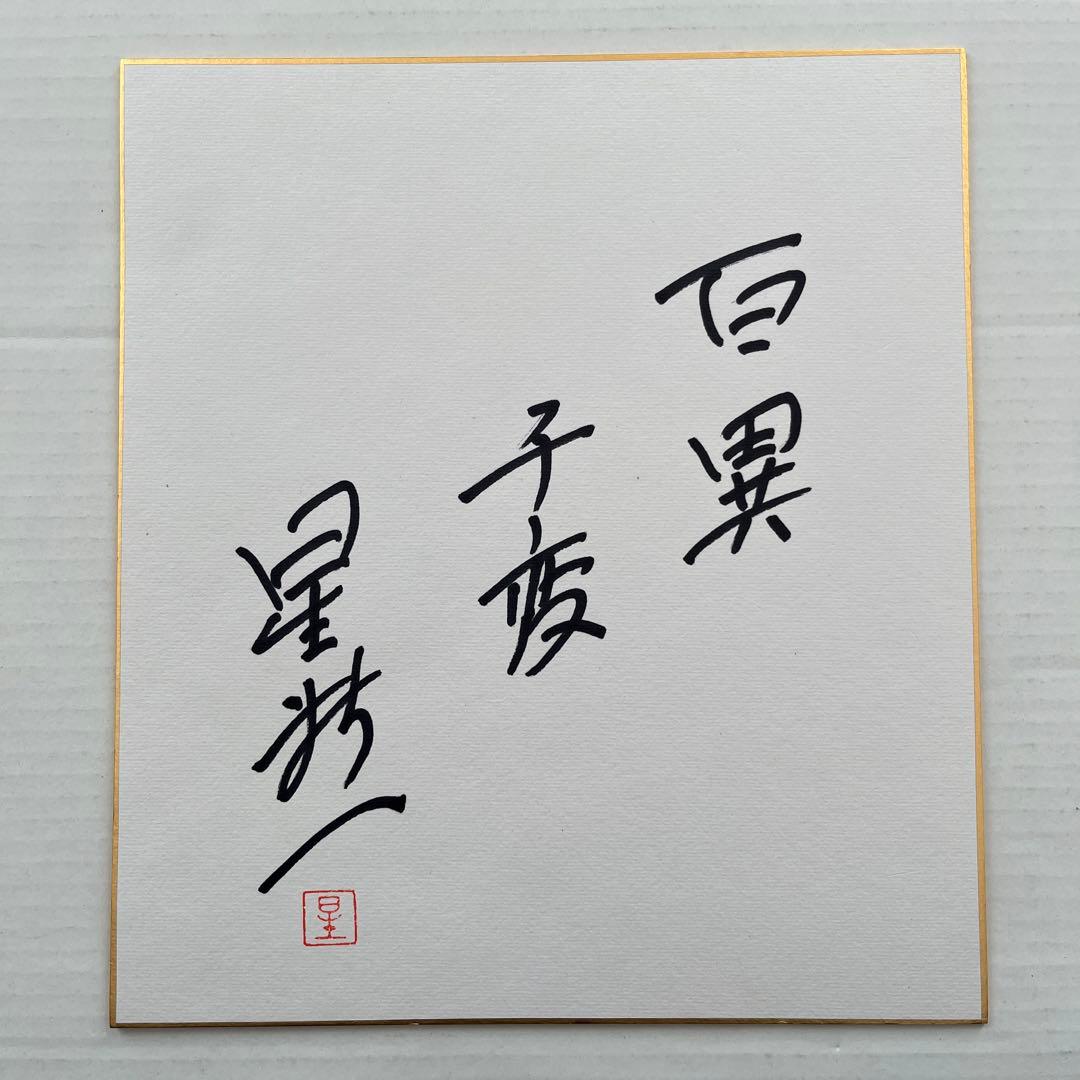 百異
千変
星新一
星